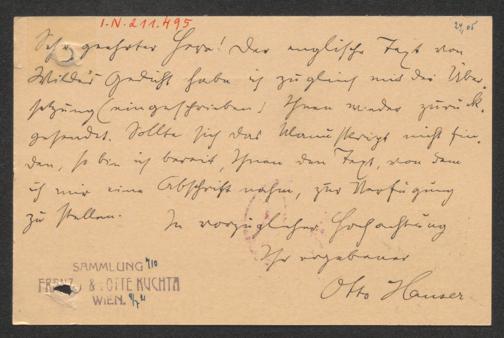 I.N. 211.495
24,05
Sehr geehrter Herr! Der englische Text von
Wilde's Gedicht habe ich zugleich mit der Über-
setzung (eingeschrieben) Ihnen wieder zurück-
gesendet. Sollte sich das Manuskript nicht fin-
den, so bin ich bereit, Ihnen den Text, von dem
ich mir eine Abschrift nahm, zur Verfügung
zu stellen.
In vorzüglicher Hochachtung
Ihr ergebener
Otto Hauser
SAMMLUNG
FRANZ & LOTTE KUCHTA
WIEN.